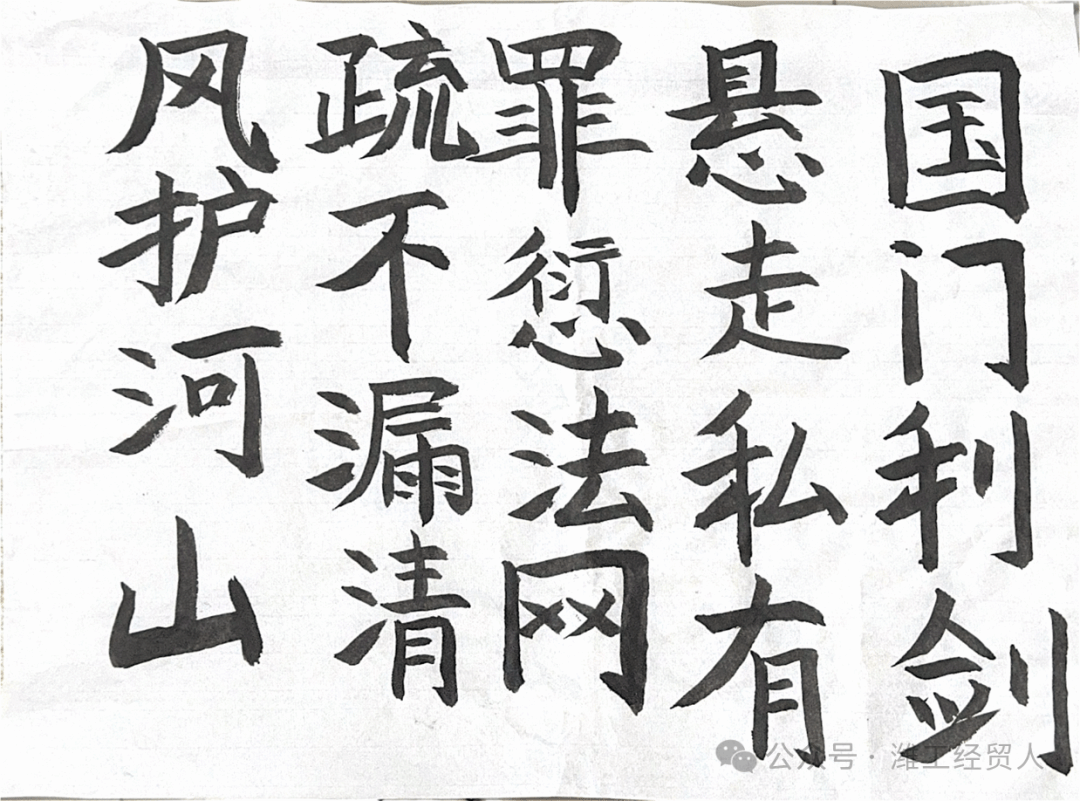 国门利剑
悬走私有
罪愆法网
疏不漏清
风护河山
公众号·潍工经贸人